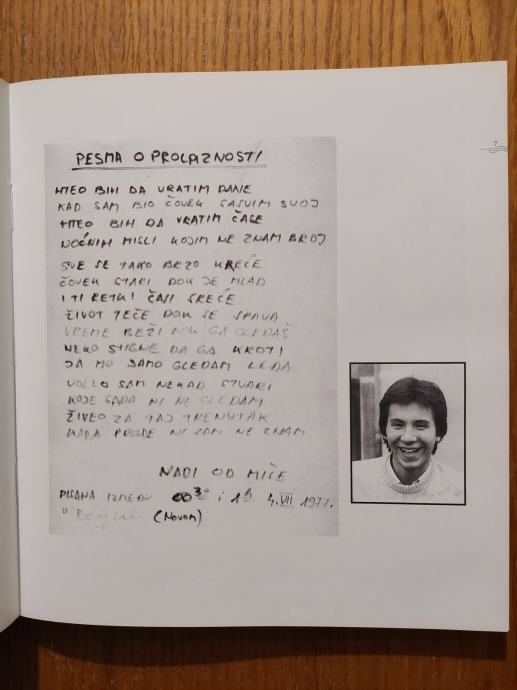 7
PESMA O PROLAZNOSTI
HTEO BIH DA VRATIM DANE
KAD SAM BIO ČOVEK SASVIM SVOJ
HTEO BIH DA VRATIM ČASE
NOĆNIH MISLI KOJIM NE ZNAM BROJ
SVE SE TAKO BRZO KREĆE
ČOVEK STARI DOK JE MLAD
I TI RETKI ČASI SREĆE
ŽIVOT TEČE DOK SE SPAVA
VREME BEŽI DOK GA GLEDAŠ
NEKO STIGNE DA GA KROTI
JA MU SAMO GLEDAM LEĐA
VOLEO SAM NEKAD STVARI
KOJE SADA NI NE GLEDAM
ŽIVEO ZA TAJ TRENUTAK
KADA PROĐE NI SAM NE ZNAM
NAĐI OD MIĆE
PISANA IZMEĐU 00 30 i 1h 4. VII 1977.
(NOVOM)